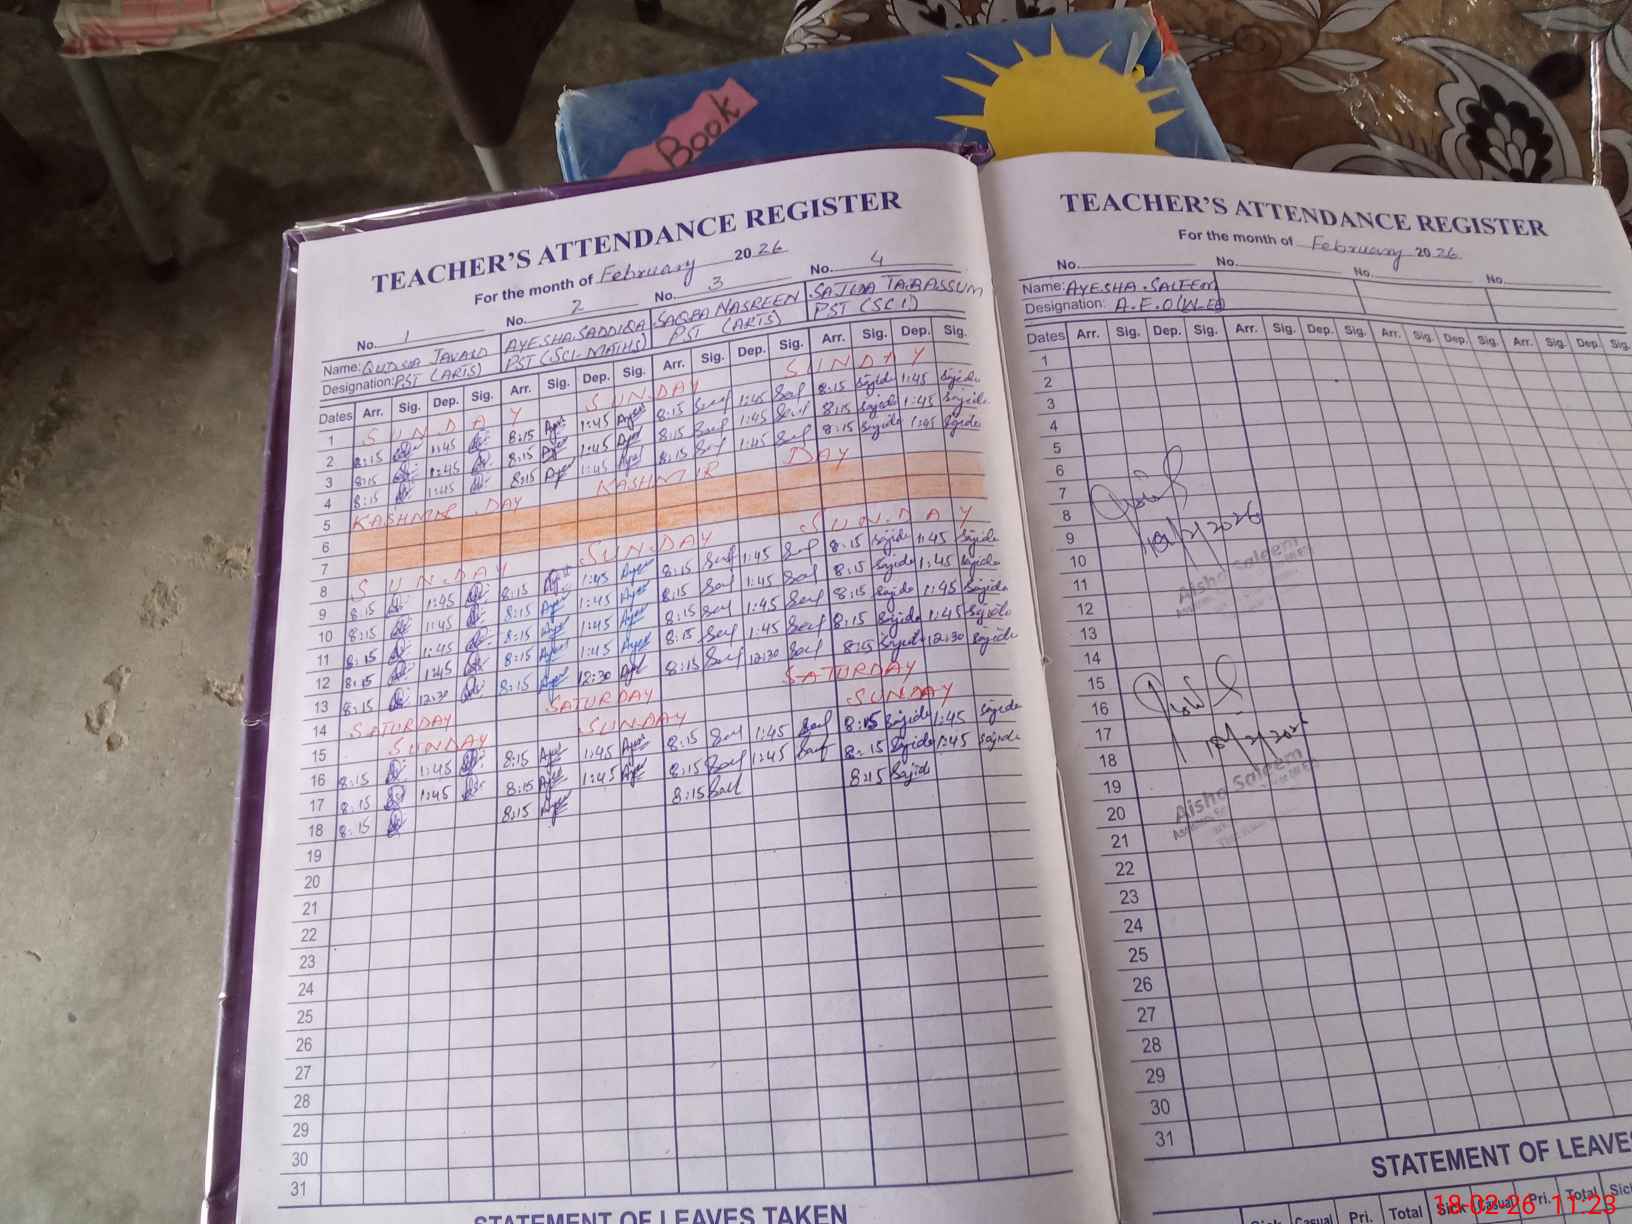 Book
TEACHER'S ATTENDANCE REGISTER
For the month of February 2026
No. 1 No. 2 No. 3 No. 4
Name: QUDSIA JAVAID AYESHA SADDIQA SAQBA NASREEN SAJIDA TABASSUM
Designation: PST (ARTS) PST (SCI-MATHS) PST (ARTS) PST (SCI)
Dates Arr. Sig. Dep. Sig. Arr. Sig. Dep. Sig. Arr. Sig. Dep. Sig. Arr. Sig. Dep. Sig.
1 SUNDAY SUNDAY SUNDAY
2 8:15 1:45 8:15 1:45 8:15 1:45 8:15 Sajida 1:45 Sajida
3 8:15 1:45 8:15 1:45 8:15 1:45 8:15 Sajida 1:45 Sajida
4 8:15 1:45 8:15 1:45 8:15 1:45 8:15 Sajida 1:45 Sajida
5 KASHMIR DAY KASHMIR DAY
6
7
8 SUNDAY SUNDAY SUNDAY
9 8:15 1:45 8:15 1:45 8:15 1:45 8:15 Sajida 1:45 Sajida
10 8:15 1:45 8:15 1:45 8:15 1:45 8:15 Sajida 1:45 Sajida
11 8:15 1:45 8:15 1:45 8:15 1:45 8:15 Sajida 1:45 Sajida
12 8:15 1:45 8:15 1:45 8:15 1:45 8:15 Sajida 1:45 Sajida
13 8:15 12:30 8:15 12:30 8:15 12:30 8:15 Sajida 12:30 Sajida
14 SATURDAY SATURDAY SATURDAY
15 SUNDAY SUNDAY SUNDAY
16 8:15 1:45 8:15 1:45 8:15 1:45 8:15 Sajida 1:45 Sajida
17 8:15 1:45 8:15 1:45 8:15 1:45 8:15 Sajida 1:45 Sajida
18 8:15 8:15 8:15 8:15 Sajida
19
20
21
22
23
24
25
26
27
28
29
30
31
STATEMENT OF LEAVES TAKEN
TEACHER'S ATTENDANCE REGISTER
For the month of February 2026
No. No. No. No.
Name: AYESHA SALEEM
Designation: A.E.O (W.EE)
Dates Arr. Sig. Dep. Sig. Arr. Sig. Dep. Sig. Arr. Sig. Dep. Sig. Arr. Sig. Dep. Sig.
1
2
3
4
5
6
7
8
9
10
11
12
13
14
15
16
17
18
19
20
21
22
23
24
25
26
27
28
29
30
31
Aisha Saleem
Aisha Saleem
STATEMENT OF LEAVE
Sick Casual Pri. Total Sick Casual Pri. Total Sick
18-02-26 11:23